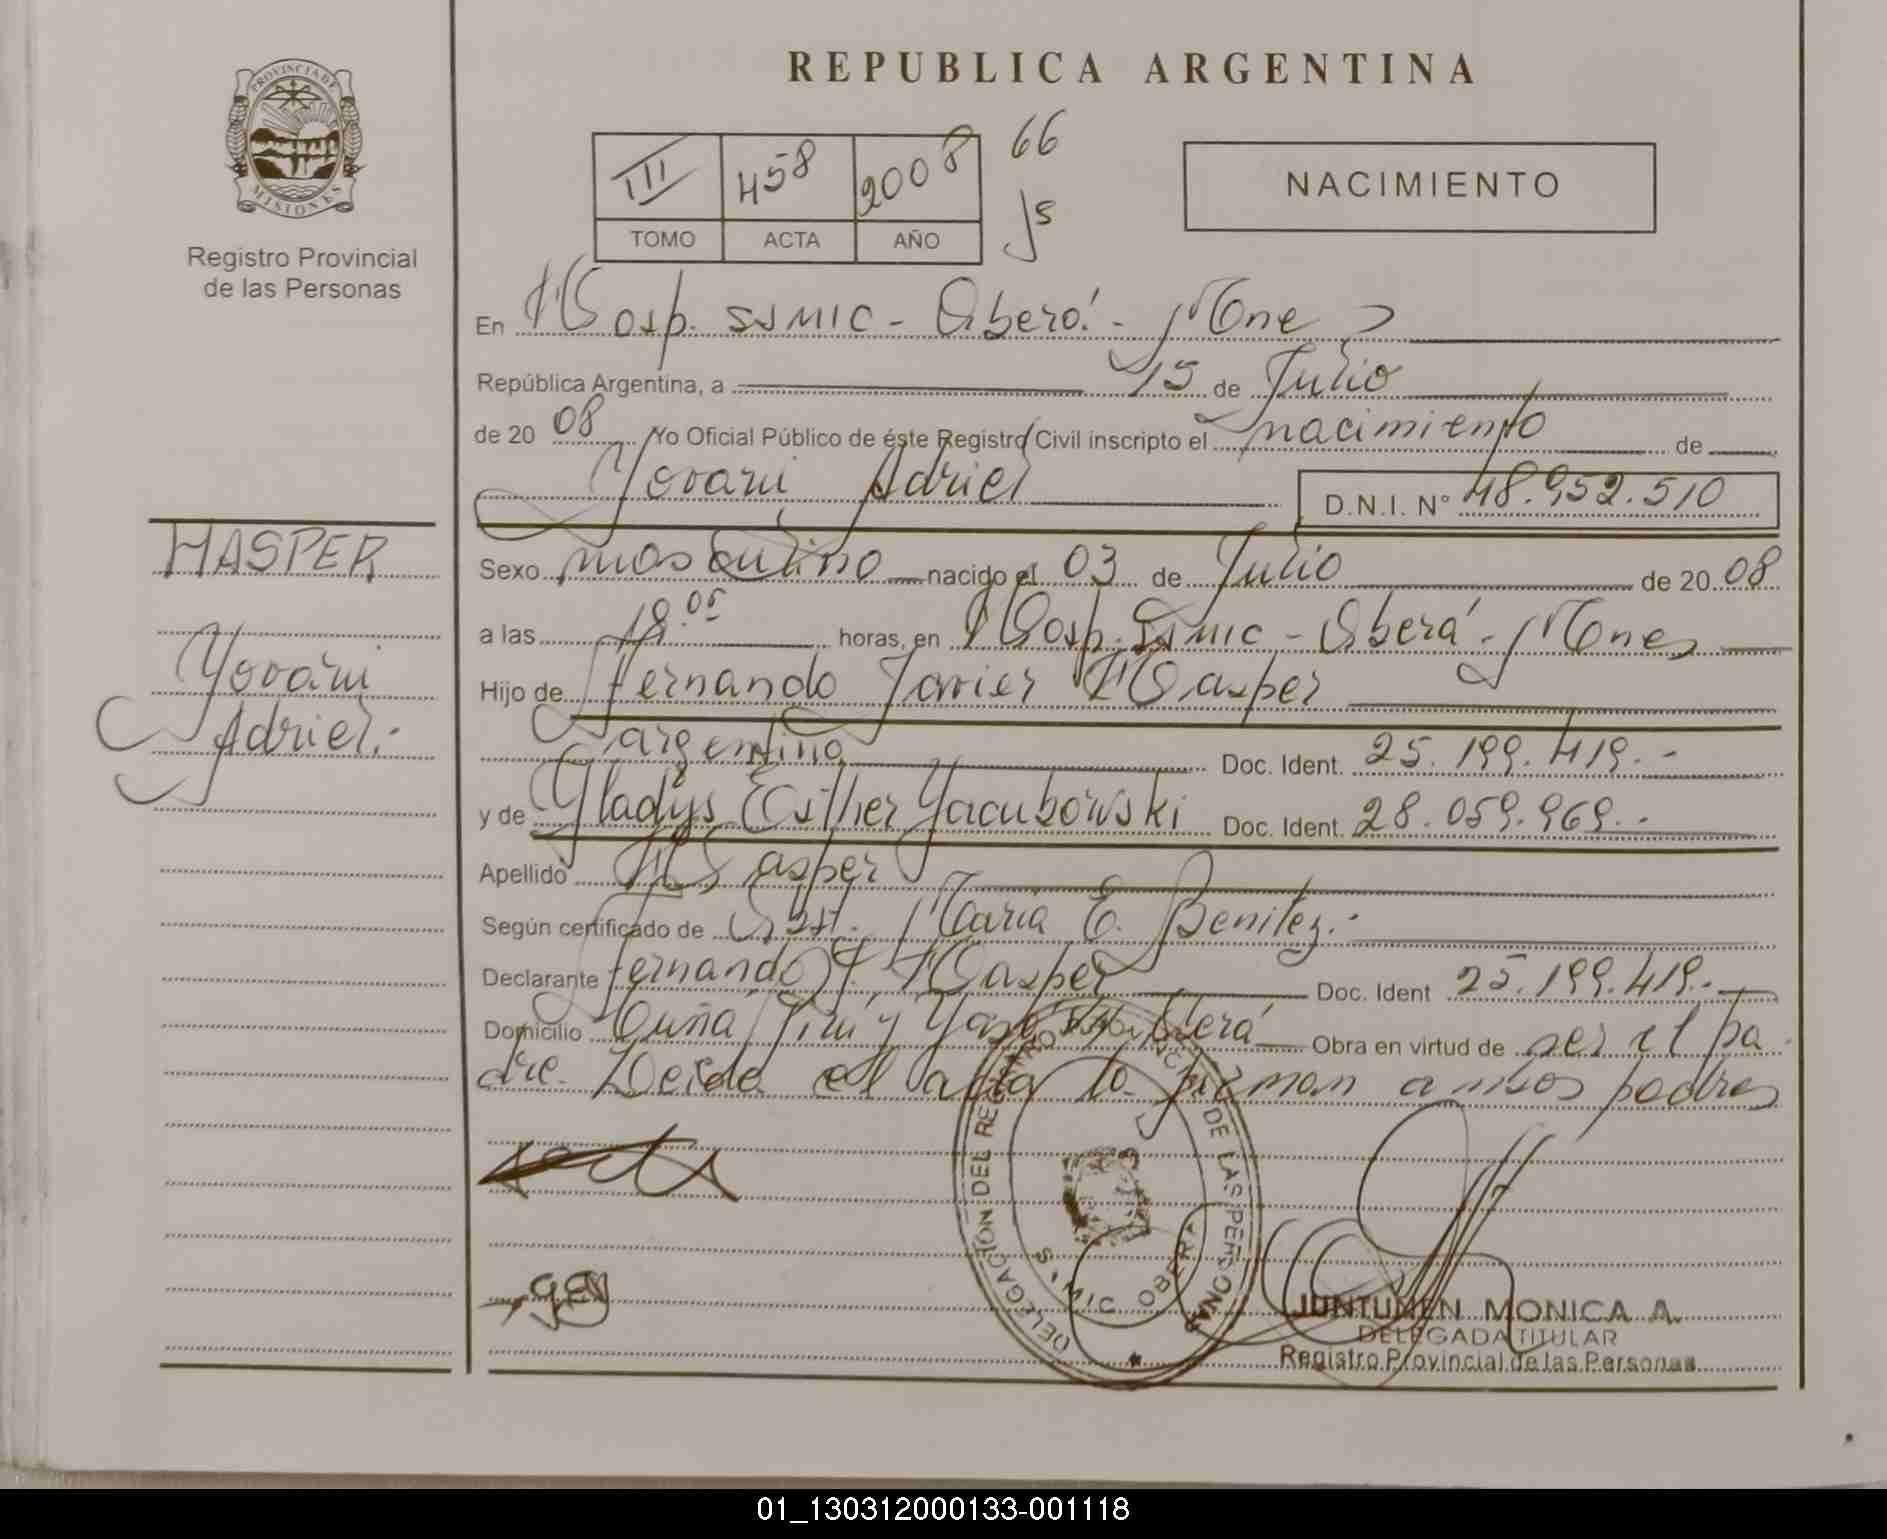 PROVINCIA DE
MISIONES
Registro Provincial
de las Personas
REPUBLICA ARGENTINA
III 458 2008 66
TOMO ACTA AÑO
NACIMIENTO
En Hosp. SSMIC - Oberá - Mnes
República Argentina, a 15 de Julio
de 20 08 Yo Oficial Público de éste Registro Civil inscripto el nacimiento de
Yovani Adriel D.N.I. N° 48.952.510
HASPER
Yovani
Adriel.-
Sexo masculino nacido el 03 de Julio de 20 08
a las 18.05 horas, en Hosp. SSMIC - Oberá - Mnes
Hijo de Fernando Javier Hasper
argentino Doc. Ident. 25.199.419.-
y de Gladys Esther Yacubowski Doc. Ident. 28.059.969.-
Apellido Hasper
Según certificado de Obst. Maria E. Benitez.-
Declarante Fernando J. Hasper Doc. Ident 25.199.419.-
Domicilio Oberá Obra en virtud de ser el pa
dre. el acta la firman ambos padres
DELEGACIÓN DEL REGISTRO DE LAS PERSONAS
OBERA
JUNTUNEN MONICA A.
DELEGADA TITULAR
Registro Provincial de las Personas
01_130312000133-001118